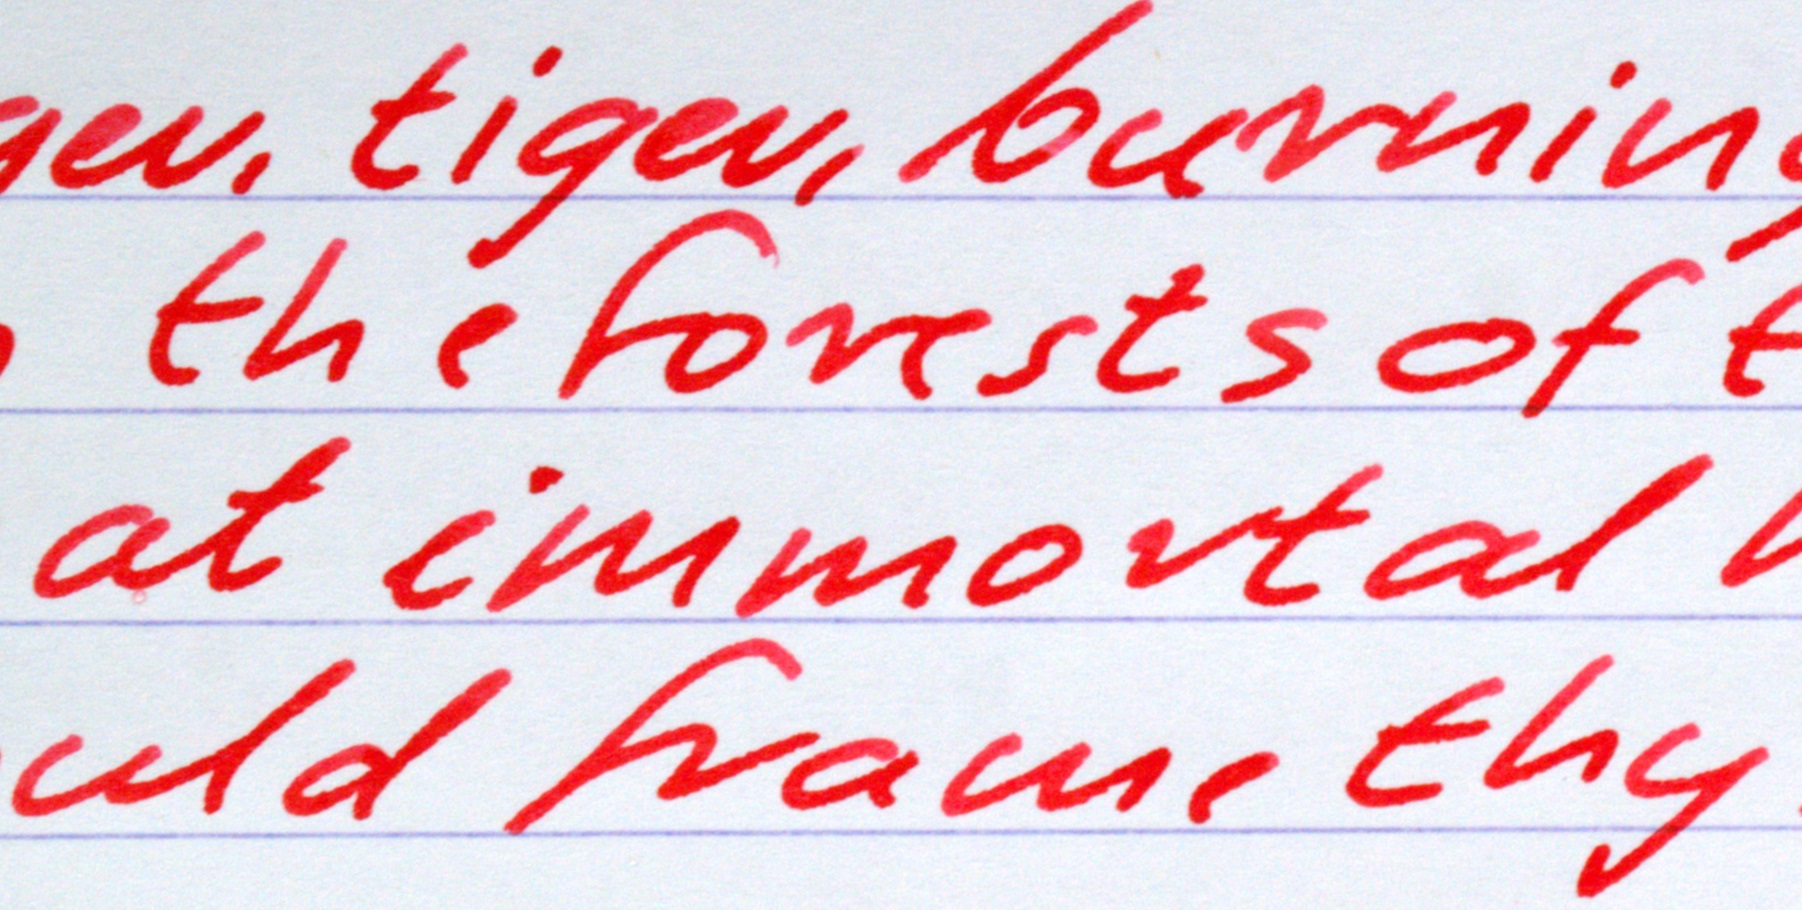 ger, tiger, burning
the forests of t
at immortal h
uld frame thy